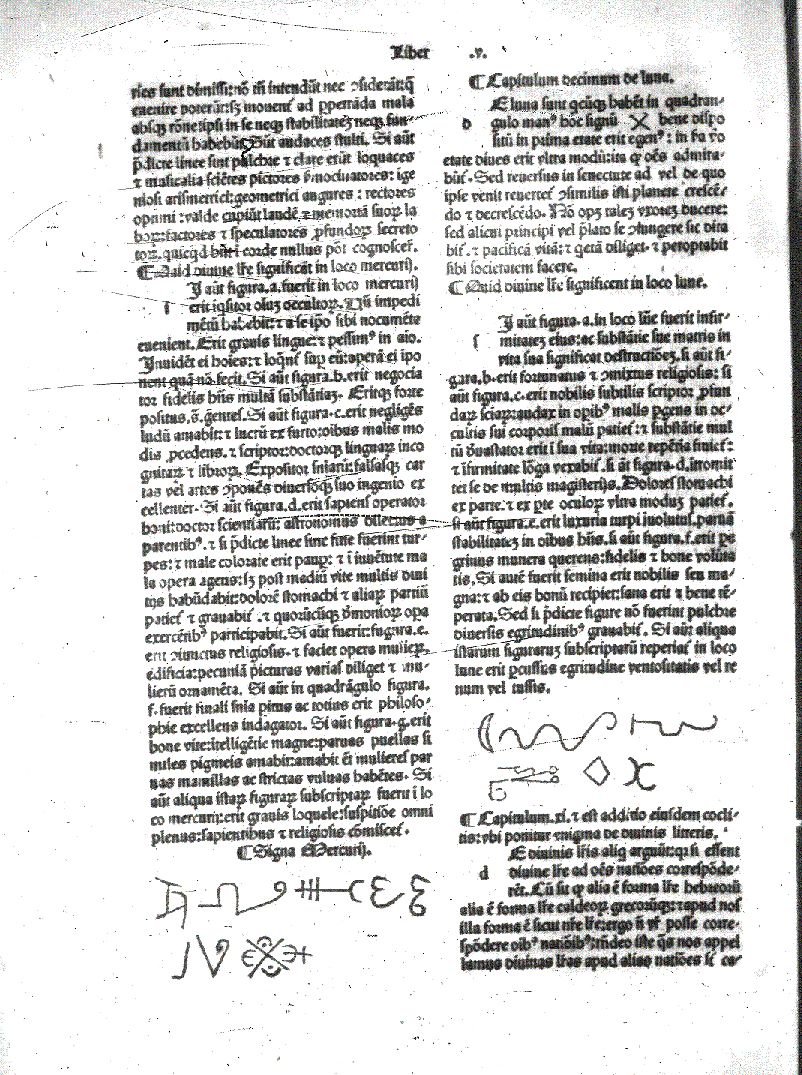 Liber .v.
ries sunt dimissi: nō tñ intendūt nec ꝯsiderāt q̄
euenire poterāt: sꝫ mouent᷑ ad ꝑpetrāda mala
absqꝫ rōne: ipsi in se neqꝫ stabilitatēꝫ neqꝫ fun⸗
damentū habebūt. Sūt audaces stulti. Si aūt
p̄dicte linee sunt pulchre ⁊ clare erūt loquaces
⁊ musicalia sciētes pictores
niosi arismetrici: geometrici augures: rectores
optimi: valde cupiūt laudē ⁊ memoriā suoꝝ la
boꝝ: factores ⁊ speculatores ꝓfundoꝝ secreto
toꝝ. quicqd hn̄t i corde nullus pōt cognoscer̄.
¶ Quid diuine lr̄e significāt in loco mercurij.
Sj aūt figura .a. fuerit in loco mercurij
erit iqsitor oīuꝫ occultoꝝ. Nō impedi
mētū habebit: ⁊ a se ip̄o sibi nocumēte
euenient. Erit grauis lingue: ⁊ pessimꝰ in aīo.
Inuidēt ei hoīes: ⁊ loq̄nt᷑ sup eū: opera ei ipo
nent quā nō fecit. Si aūt figura .b. erit negocia
tor fidelis hn̄s multā substātiaꝫ. Eritqꝫ forte
positus Si aūt figura .c. erit negligēs
ludū amabit: ⁊ lucrū ex furto: oībus malis mo
dis ꝓcedens. ⁊ scriptor: doctorqꝫ linguaꝝ inco
gnitaꝝ ⁊ libroꝝ. Expositor sniarū: falsasqꝫ car
tas vel artes ꝯponēs diuersoqꝫ suo ingenio ex
cellenter. Si aūt figura .d. erit sapiens operator
boni: doctor scientiarū: astronomus dilectus a
parentibꝰ. ⁊ si p̄dicte linee sine fine fuerint tur⸗
pes: ⁊ male colorate erit pauꝑ: ⁊ i iuuētute ma
la opera agens: sꝫ post mediū vite multis diui
tijs habūdabit: dolorē stomachi ⁊ aliaꝝ partiū
patiet᷑ ⁊ grauabit᷑. ⁊ quorūcūqꝫ demonioꝝ opa
exercētibꝰ participabit. Si aūt fuerit: figura .e.
erit ꝯiunctus religiosis. ⁊ faciet opera mulieꝝ.
edificia: pecuniā picturas varias diliget ⁊ mu⸗
lierū ornamēta. Si aūt in quadrāgulo figura.
f. fuerit finali snīa pius ac totius erit philoso⸗
phie excellens indagator. Si aūt figura .g. erit
bone vite: itelligētie magne: paruas puellas si
miles pigmeis amabit: amabit et mulieres par
uas mamillas ac strictas vuluas habētes. Si
aūt aliqua istaꝝ figuraꝝ subscriptaꝝ fuerit i lo
co mercurij: erit grauis loquele: suspitiōe omni
plenus: sapientibus ⁊ religiosis cōmiscet᷑.
¶ Signa Mercurij.
¶ Capitulum decimum de luna.
SE luna sunt qcūqꝫ habēt in quadran⸗
gulo manꝰ hoc signū bene dispo
situ in prima etate erit egenꝰ: in scda vo
etate diues erit vltra modū: ita qꝫ oēs admira⸗
būt᷑. Sed reuersus in senectute ad vel de quo
ipse venit reuertet᷑ ꝯsimilis isti planete crescē⸗
do ⁊ decrescēdo. Nō opꝫ tales vxores ducere:
sed alicui principi vel p̄lato se ꝯiungere sic dita
bit᷑. ⁊ pacificā vitā: ⁊ qetā diliget. ⁊ peroptabit
sibi societatem facere.
¶ Quid diuine lr̄e significent in loco lune.
SJ aūt figura .a. in loco lūe fuerit infir⸗
mitates eius: ac substātie sue matris in
vita sua significat destructiōeꝫ. si aūt fi⸗
gura .b. erit fortunatus ⁊ ꝯmixtus religiosis: si
aūt figura .c. erit nobilis subtilis scriptor: ꝓfun
daꝝ sciaꝝ: audax in opibꝰ malis ꝑgens in oc⸗
cultis sui corporis malū patiet᷑: ⁊ substātie mul
tū deuastator erit i sua vita: morte repētia finiet᷑:
⁊ ifirmitate lōga vexabit᷑. si aūt figura .d. itromit
tet se de multis magisterijs. Dolores stomachi
ex parte: ⁊ ex pte oculoꝝ vltra moduꝫ patiet᷑.
si aūt figura .e. erit luxuria turpi inuolutus. paruā
stabilitateꝫ in oībus hn̄s. si aūt figura .f. erit pe
grinus munera querens: fidelis ⁊ bone volūta
tis. Si autē fuerit femina erit nobilis seu ma⸗
gna: ⁊ ab eis bonū recipiet: sana erit ⁊ bene tē⸗
perata. Sed si p̄dicte figure nō fuerint pulchre
diuersis egritudinibꝰ grauabit᷑. Si aūt aliqua
istarum figuraruꝫ subscriptarū reperias in loco
lune erit ꝑcussus egritudine ventositatis vel re
num vel tussis.
¶ Capitulum .xi. ⁊ est additio eiusdem cocli⸗
tis: vbi ponitur enigma de diuinis litteris.
DE diuinis lr̄is aliq arguūt: q̄ si essent
diuine lr̄e ad oēs natiōes correspōde⸗
rēt. Cū sit qꝫ alia ē forma lr̄e hebreorū
alia ē forma lr̄e caldeoꝝ. grecorūqꝫ: ⁊ apud nos
illa forma ē sicut nr̄e lr̄e: ergo nō vr̄ posse corre⸗
spōdere oībꝰ natiōibꝰ: iō iste q̄s nos appel
lamus diuinas lr̄as apud alias natiōes si ca⸗